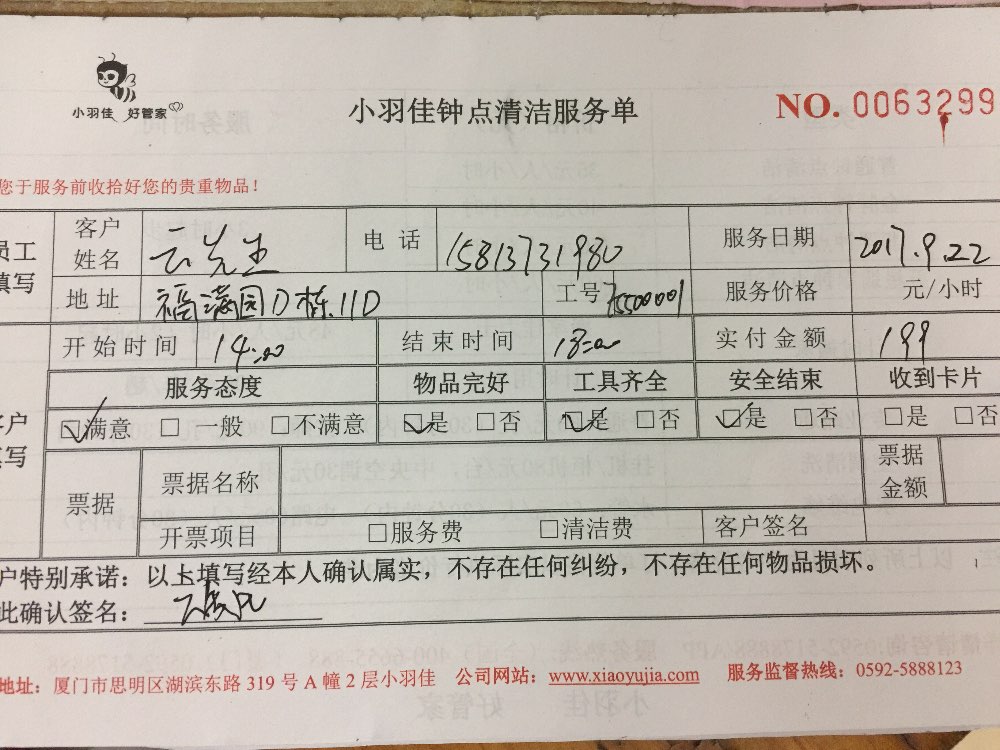 小羽佳 好管家
小羽佳钟点清洁服务单
NO. 0063299
您于服务前收拾好您的贵重物品！
员工填写 客户姓名 云先生 电话 15813731980 服务日期 2017.9.22
地址 福满园D栋11D 工号 75500001 服务价格 元/小时
开始时间 14:00 结束时间 18:00 实付金额 199
服务态度 物品完好 工具齐全 安全结束 收到卡片
客户填写 ☑满意 □一般 □不满意 ☑是 □否 ☑是 □否 ☑是 □否 □是 □否
票据 票据名称 票据金额
开票项目 □服务费 □清洁费 客户签名
户特别承诺：以上填写经本人确认属实，不存在任何纠纷，不存在任何物品损坏。
此确认签名：
地址：厦门市思明区湖滨东路 319 号 A 幢 2 层小羽佳 公司网站：www.xiaoyujia.com 服务监督热线：0592-5888123